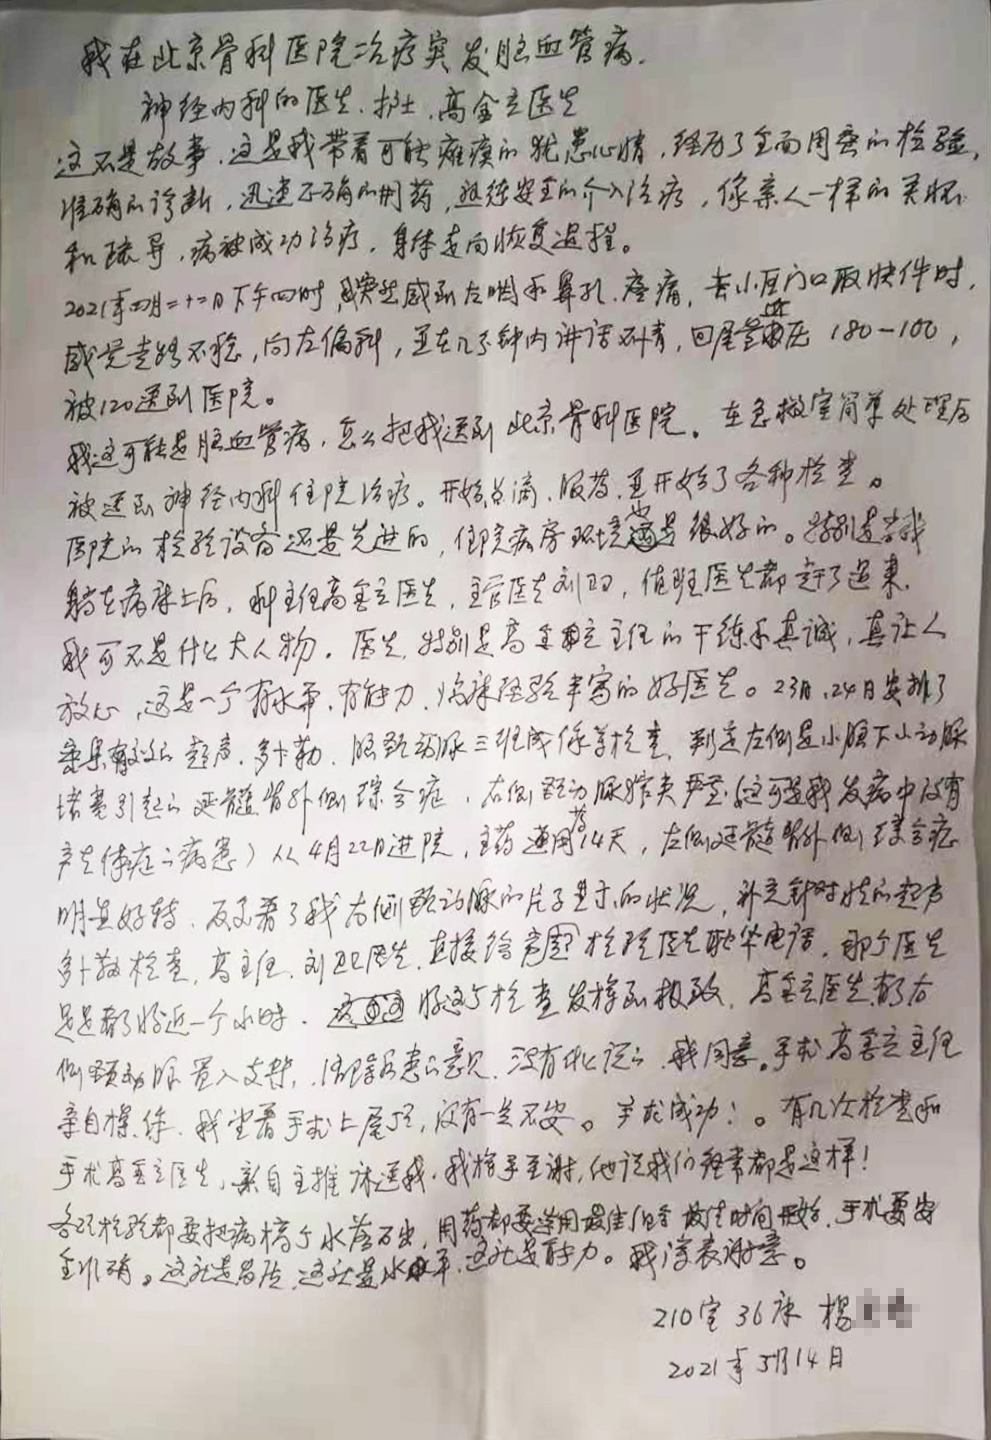 我在北京骨科医院治疗突发脑血管病.
神经内科的医生.护士.高金立医生
这不是故事.这是我带着可能瘫痪的忧患心情，经历了全面周密的检验，
准确的诊断，迅速正确的用药，熟练安全的介入治疗，像亲人一样的关怀
和疏导，病被成功治疗，身体走向恢复过程。
2021年四月二十二日下午四时，我突然感到左咽和鼻孔.疼痛，去小区门口取快件时，
感觉走路不稳，向左偏斜，并在几分钟内讲话不清，回屋量血压180-100，
被120送到医院。
我这可能是脑血管病，怎么把我送到北京骨科医院。在急救室简单处理后
被送到神经内科住院治疗。开始点滴、服药，并开始了各种检查。
医院的检验设备还是先进的，住院病房环境也是很好的。特别是当我
躺在病床上后，科主任高金立医生，主管医生刘卫卫，值班医生都赶了过来.
我可不是什么大人物。医生，特别是高金立主任的干练和真诚，真让人
放心，这是一个有水平、有能力、临床经验丰富的好医生。23日、24日安排了
超声、多卜勒、脑颈动脉三维成像等检查，判定左侧是小脑下小动脉
堵塞引起的延髓背外侧综合症，右侧颈动脉狭窄严重（这可是我发病中没有
产生体症的病患）从4月22日进院，主药连用药14天，左侧延髓背外侧综合症
明显好转，反复看了我右侧颈动脉的片子显示的状况，补充针对性的超声
多卜勒检查，高主任、刘卫卫医生，直接给检验医生联华电话，那个医生
足足看了好近一个小时.将这个检查发挥到极致，高金立医生都为右
侧颈动脉置入支架，没有什么说的，我同意。手术高金立主任
亲自操作，我坐着手术上尾巧，没有一点不安。手术成功！。有几次检查和
手术高金立医生，亲自主推床送我.我招手至谢，他说我们经常都是这样！
各项检验都要把病搞个水落石出，用药都要选用最佳组合最佳时间开始，手术要安
全准确。这就是品质，这就是水平，这就是能力。我深表谢意。
210室 36床 杨
2021年5月14日